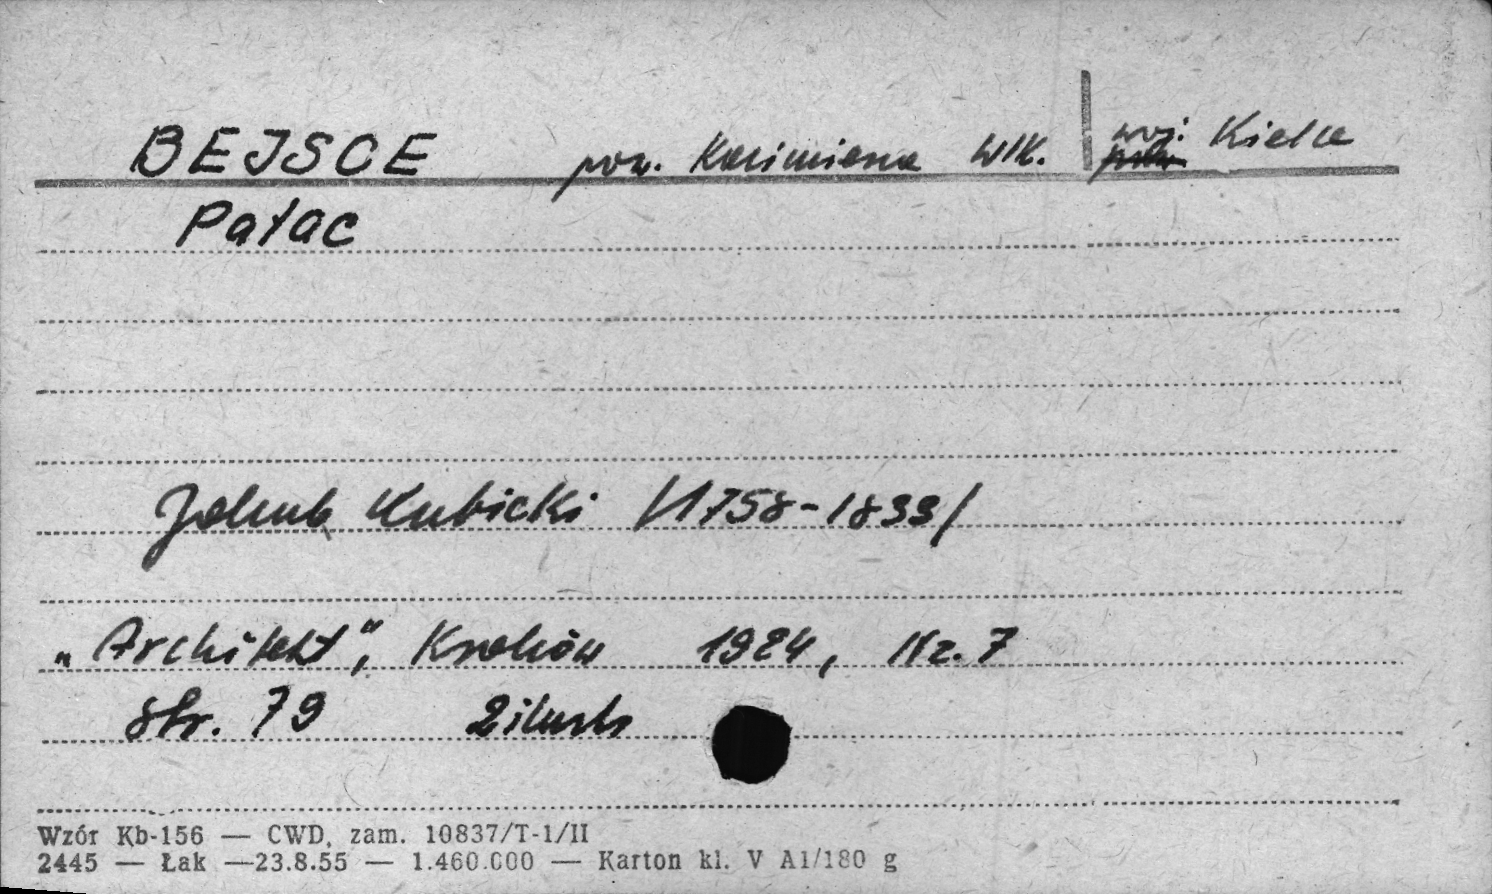 BEJSCE pow. Kazimierza Wlk. woj. Kielce
Pałac
Jakub Kubicki /1758-1833/
„Architekt", Kraków 1924, Nz. 7
str. 79 2 ilustr
Wzór Kb-156 — CWD, zam. 10837/T-1/II
2445 — Łak —23.8.55 — 1.460.000 — Karton kl. V A1/180 g